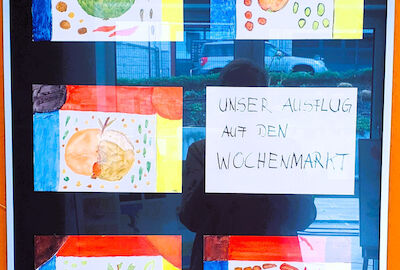 UNSER AUSFLUG
AUF DEN
WOCHENMARKT